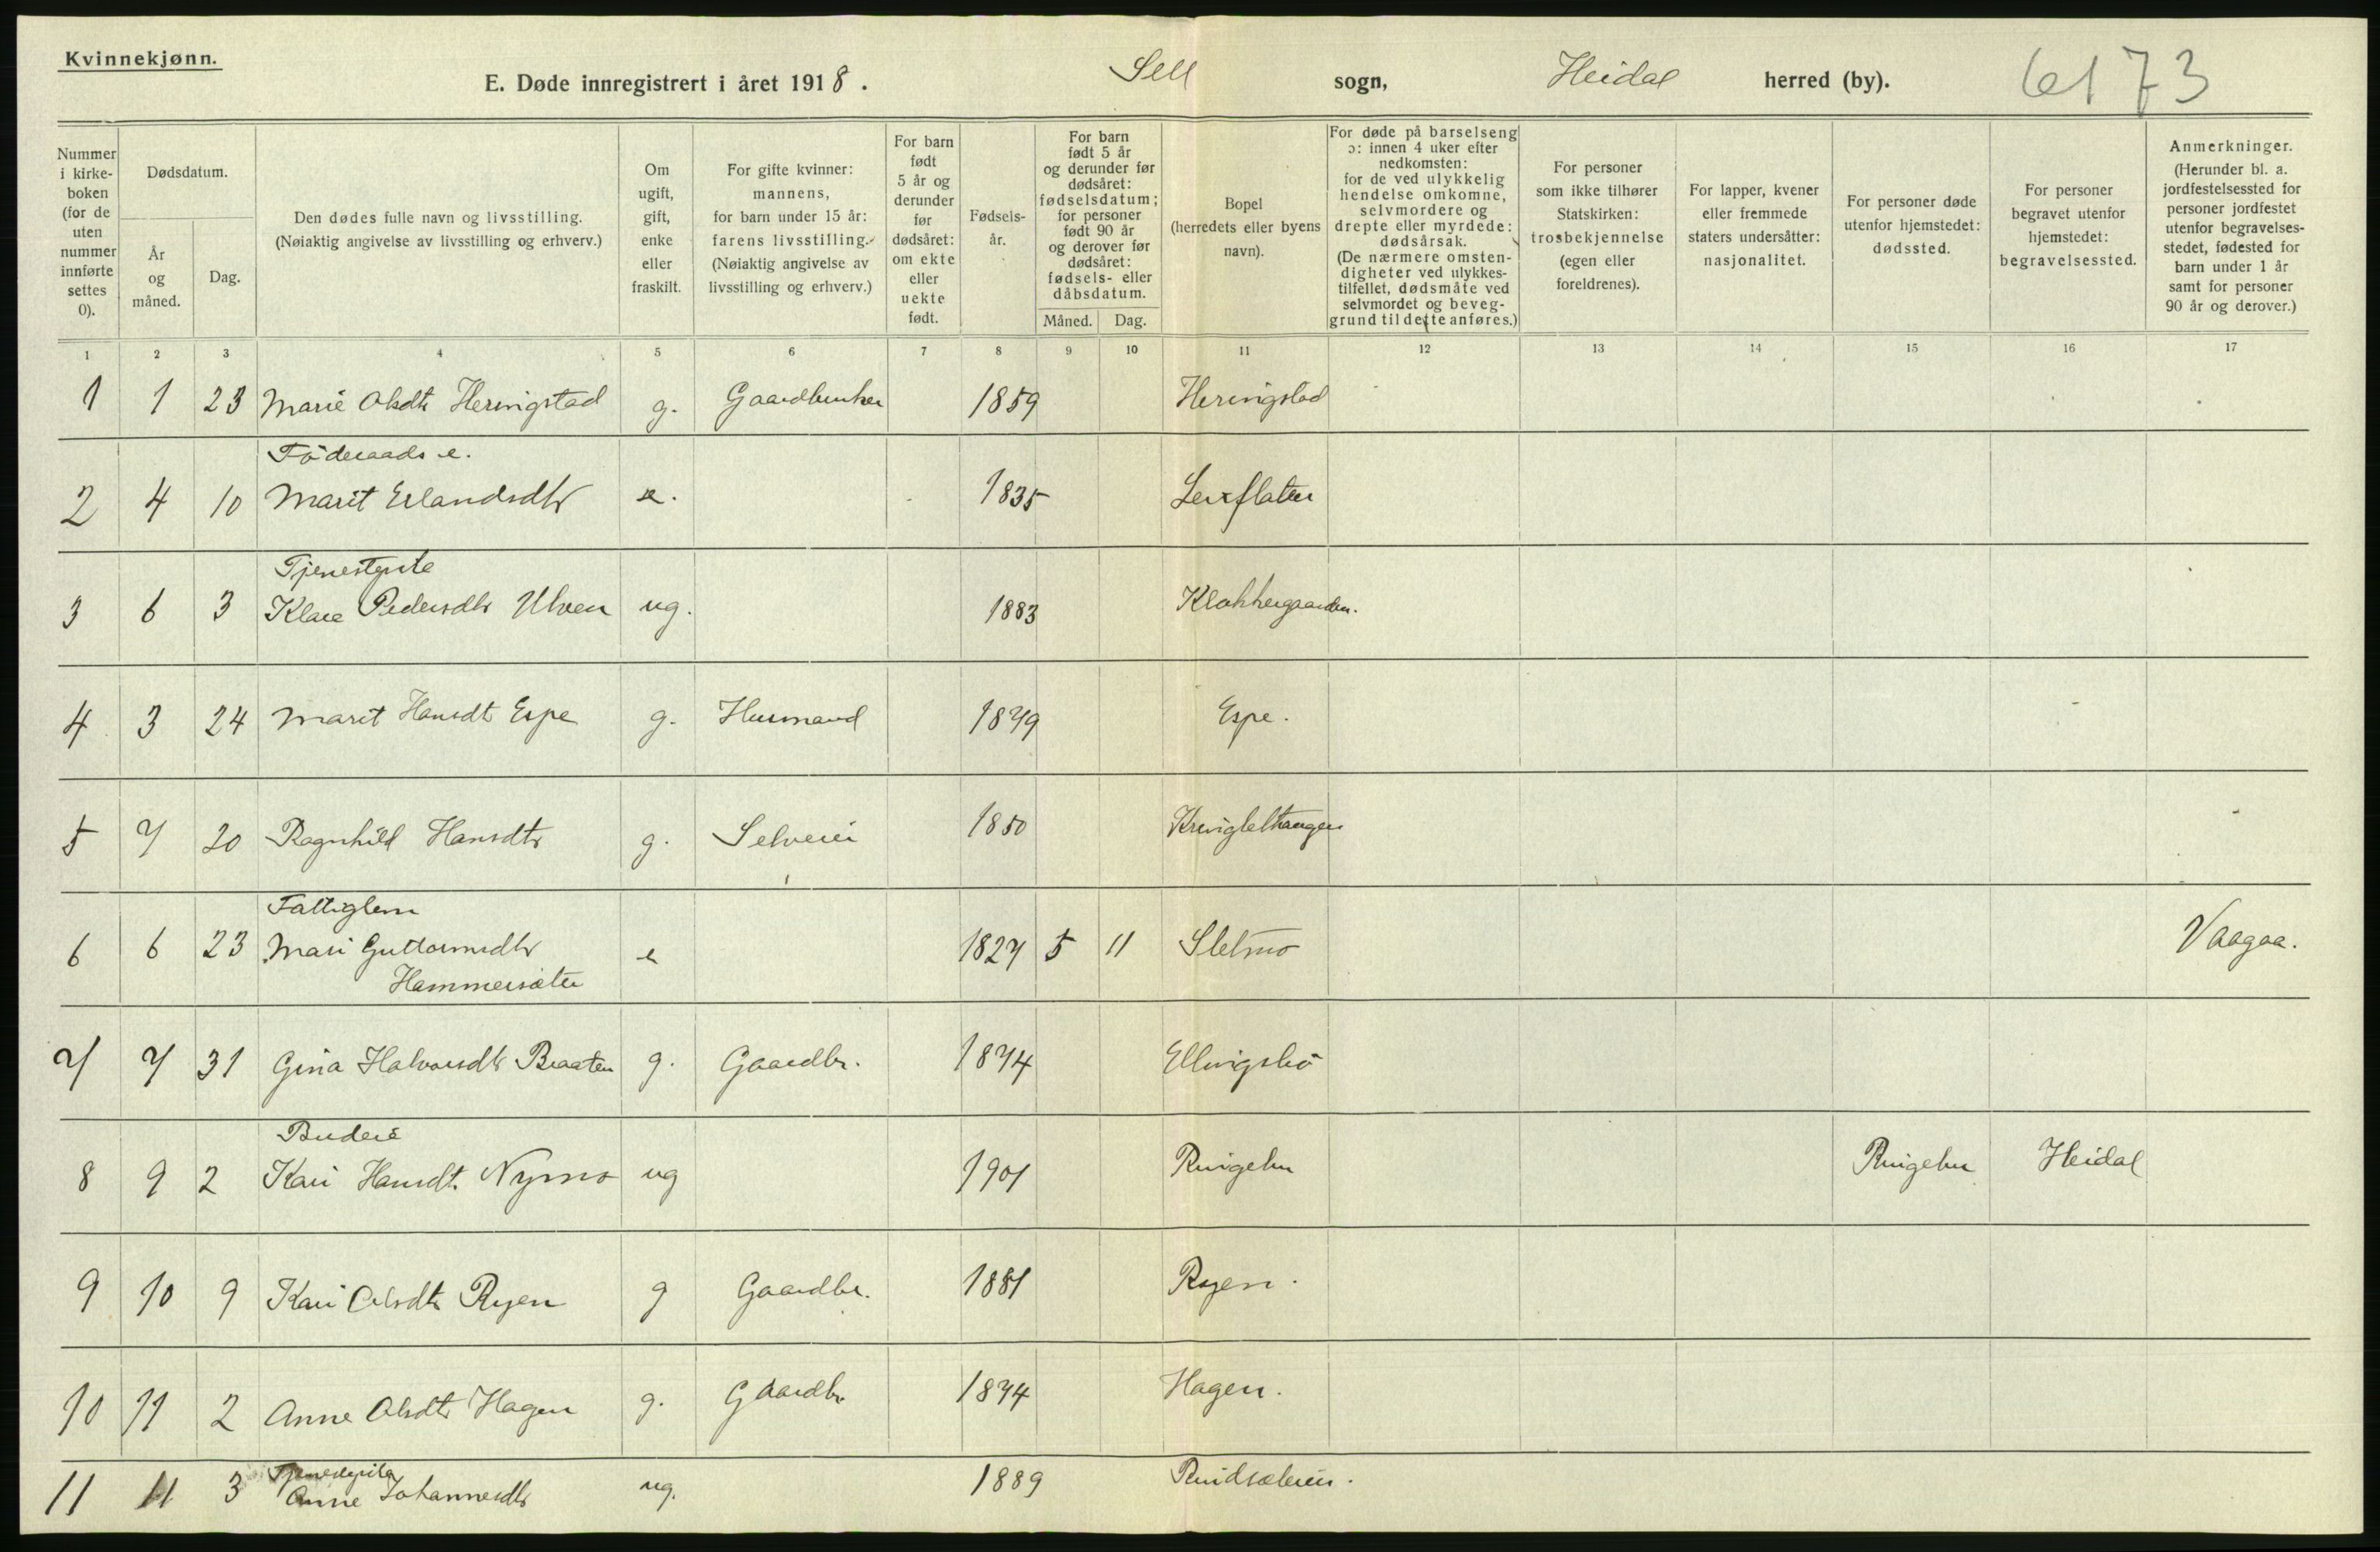 Kvinnekjønn.
E. Døde innregistrert i året 1918. Sell sogn, Heidal herred (by). 6173
Nummer i kirke-boken (for de uten nummer innførte settes 0).
Dødsdatum.
År og måned.
Dag.
Den dødes fulle navn og livsstilling.
(Nøiaktig angivelse av livsstilling og erhverv.)
Om ugift, gift, enke eller fraskilt.
For gifte kvinner: mannens, for barn under 15 år: farens livsstilling. (Nøiaktig angivelse av livsstilling og erhverv.)
For barn født 5 år og derunder før dødsåret: om ekte eller uekte født.
Fødsels-år.
For barn født 5 år og derunder før dødsåret: fødselsdatum; for personer født 90 år og derover før dødsåret: fødsels- eller dåbsdatum.
Måned. Dag.
Bopel (herredets eller byens navn).
For døde på barselseng ɔ: innen 4 uker efter nedkomsten: for de ved ulykkelig hendelse omkomne, selvmordere og drepte eller myrdede: dødsårsak. (De nærmere omsten-digheter ved ulykkes-tilfellet, dødsmåte ved selvmordet og beveg-grund til dette anføres.)
For personer som ikke tilhører Statskirken: trosbekjennelse (egen eller foreldrenes).
For lapper, kvener eller fremmede staters undersåtter: nasjonalitet.
For personer døde utenfor hjemstedet: dødssted.
For personer begravet utenfor hjemstedet: begravelsessted.
Anmerkninger. (Herunder bl. a. jordfestelsessted for personer jordfestet utenfor begravelses-stedet, fødested for barn under 1 år samt for personer 90 år og derover.)
1 2 3 4 5 6 7 8 9 10 11 12 13 14 15 16 17
1 1 23 Marie Olsdtr Heringstad g. Gaardbruker 1859 Heringstad
Föderaads e.
2 4 10 Marit Erlandsdtr e. 1835 Leirflaten
Tjenestepike
3 6 3 Klara Pedersdtr Ulven ug. 1883 Klokkergaarden.
4 3 24 Marit Hansdtr Espe g. Husmand 1849 Espe.
5 7 20 Ragnhild Hansdtr g. Selveier 1850 Kringleltangen
Fattiglem
6 6 23 Mari Guttormsdtr e 1827 5 11 Sletmo Vaagaa.
Hammersæter
7 7 31 Gina Halvorsdtr Braaten g. Gaardbr. 1874 Ellingsbö
Budeie
8 9 2 Kari Hansdtr. Nymo ug 1901 Ringebu Ringebu Heidal
9 10 9 Kari Olsdtr Ryen g Gaardbr. 1881 Ryen.
10 11 2 Anne Olsdtr Hagen g. Gaardbr. 1874 Hagen.
Tjenestepike
11 11 3 Anne Johannesdtr ug. 1889